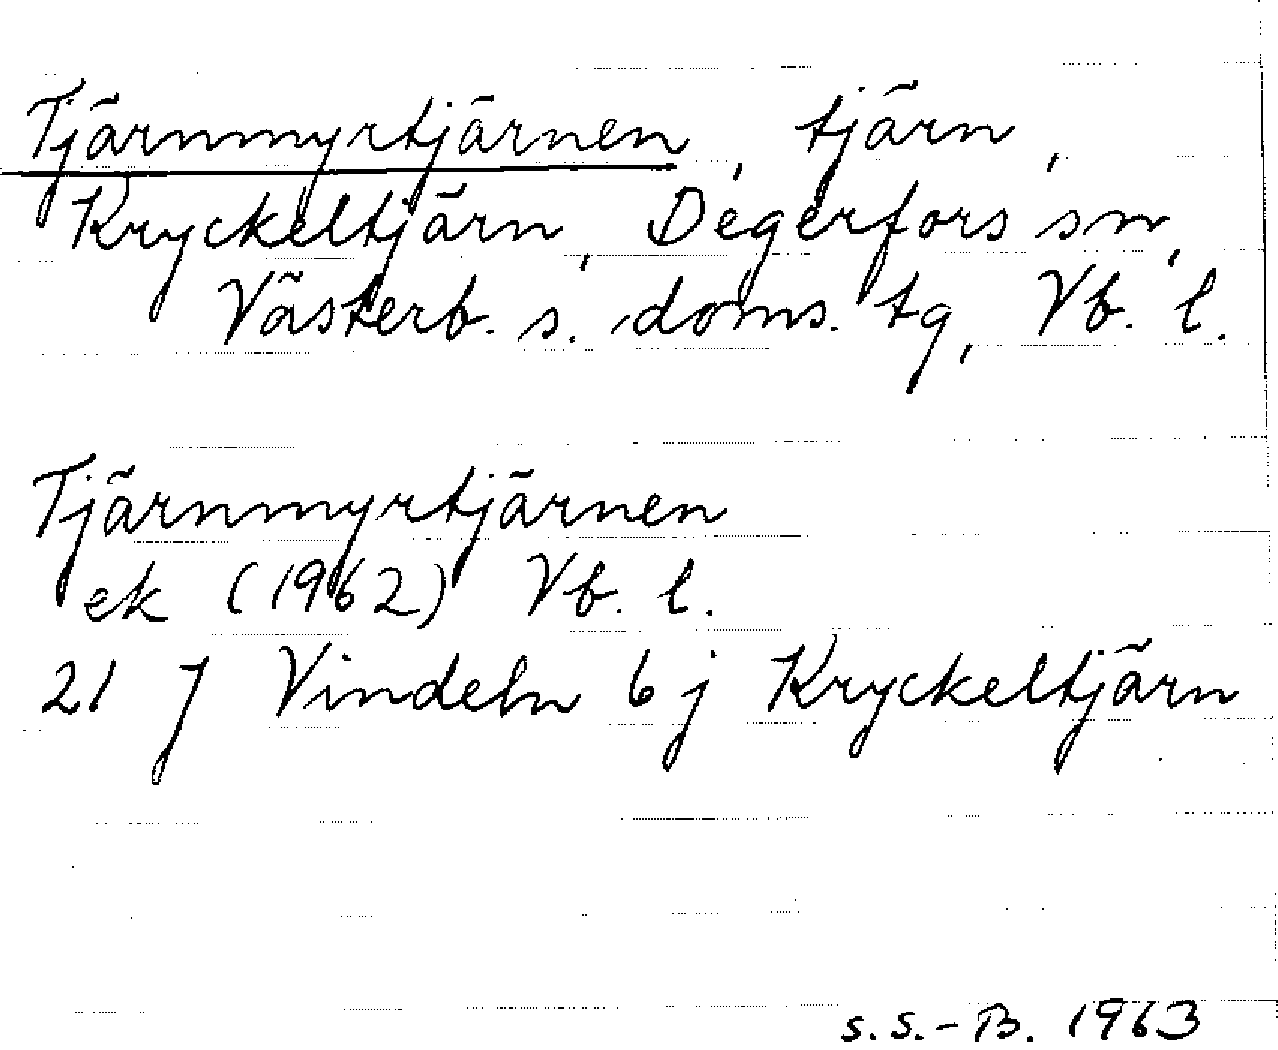 Tjärnmyrtjärnen, tjärn,
Kryckeltjärn, Degerfors sn,
Västerb. s. doms. tg, Vb. l.
Tjärnmyrtjärnen
ek (1962) Vb. l.
21 J Vindeln 6 j Kryckeltjärn
S.S.-B. 1963